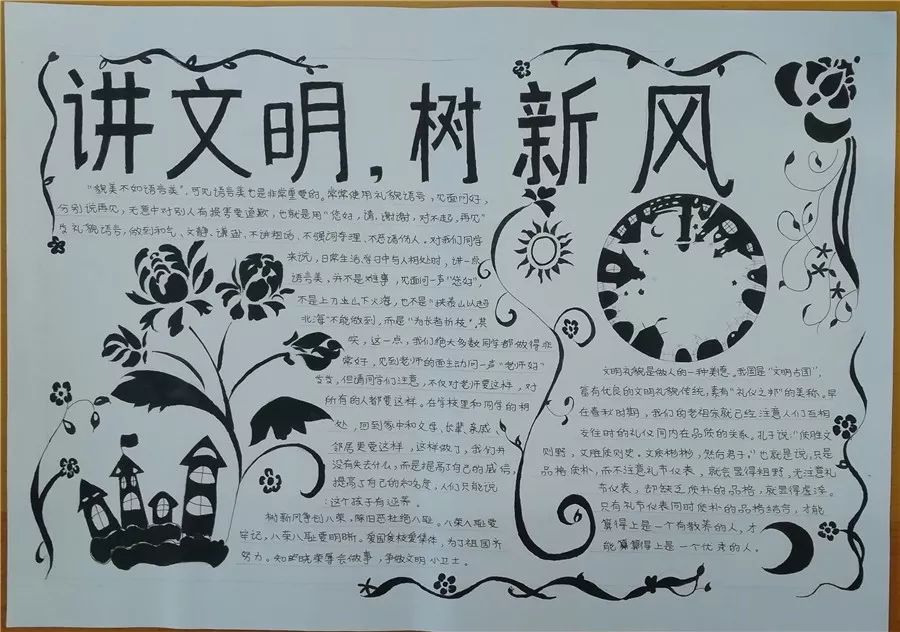 讲文明，树新风
“貌美不如语言美”，可见语言美也是非常重要的。常常使用礼貌语言，见面问好，
分别说再见，无意中对别人有损害要道歉，也就是用“您好，请，谢谢，对不起，再见”
等礼貌语言，做到和气、文静、谦逊，不讲粗话、不强词夺理、不恶语伤人，对我们同学
来说，日常生活、学习中与人相处时，讲一点
语言美，并不是难事，见面问一声“您好”，
不是上刀山下火海，也不是“挟泰山以超
北海”不能做到，而是“为长者折枝”，其
实，这一点，我们绝大多数同学都做得非
常好，见到老师的面主动问一声“老师好”
等等，但请同学们注意，不仅对老师要这样，对
所有的人都要这样。在学校里和同学的相
处，回到家中和父母、长辈、亲戚、
邻居更要这样，这样做了，我们并
没有失去什么，而是提高了自己的威信，
提高了自己的知名度，人们只能说
：这个孩子有运养。
树新风争创八荣，除旧恶杜绝八耻。八荣八耻要
牢记，八荣八耻要明晰。爱国爱校爱集体，为了祖国齐
努力。知晓荣辱会做事，争做文明小卫士。
文明礼貌是做人的一种美德。我国是“文明古国”，
富有优良的文明礼貌传统，素有“礼仪之邦”的美称。早
在春秋时期，我们的老祖宗就已经注意人们互相
交往时的礼仪同内在品质的关系。孔子说：“质胜文
则野，文胜质则史。文质彬彬，然后君子。”也就是说，只是
品格质朴，而不注意礼节仪表，就会显得粗野，光注意礼
节仪表，却缺乏质朴的品格，就显得虚浮。
只有礼节仪表同时质朴的品格结合，才能
算得上是一个有教养的人，才
能算算得上是一个优秀的人。